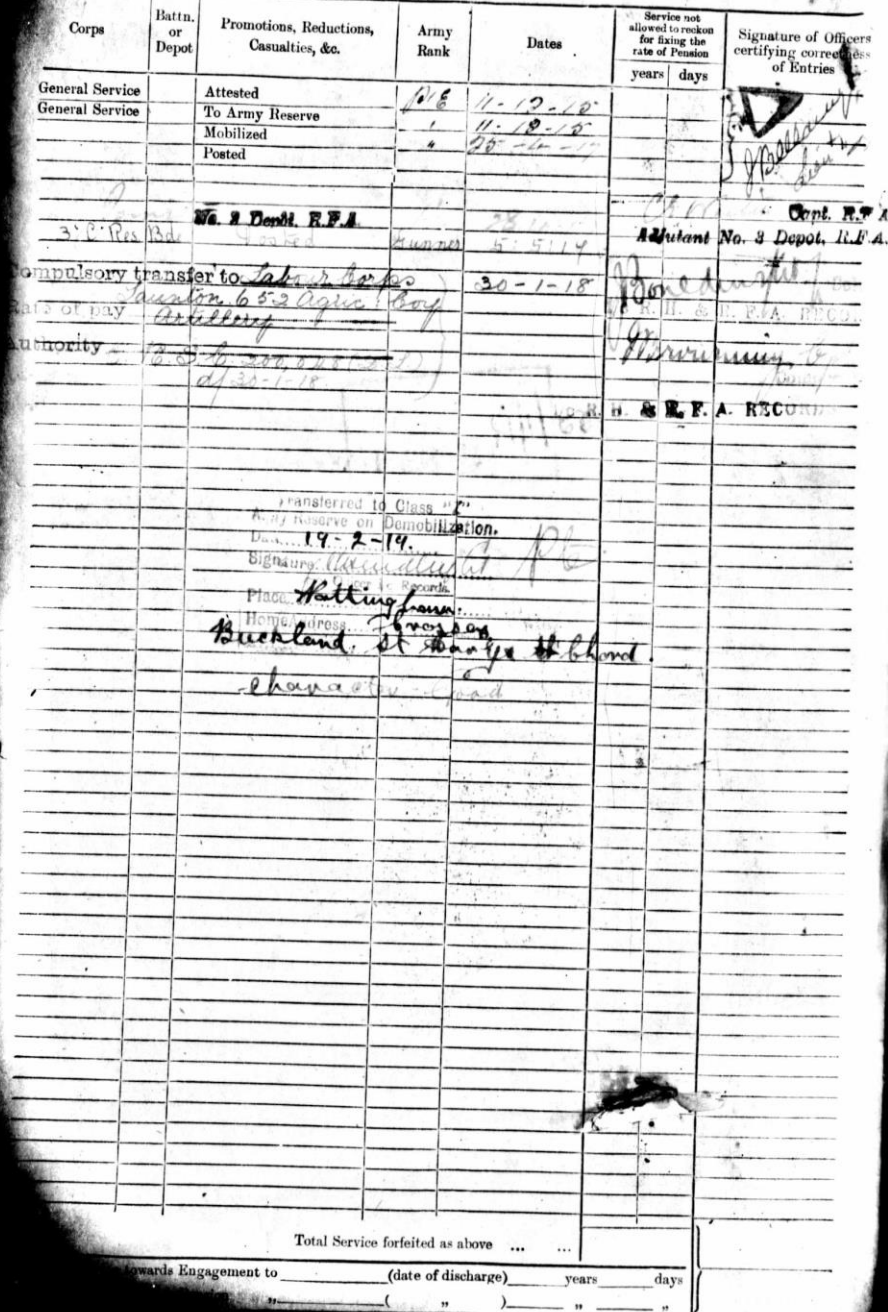 Corps
Battn. or Depot
Promotions, Reductions, Casualties, &c.
Army Rank
Dates
Service not allowed to reckon for fixing the rate of Pension
years days
Signature of Officers certifying correctness of Entries
General Service Attested Pte 11-12-15
General Service To Army Reserve " 11-12-15
Mobilized " 25-4-17
Posted
No. 3 Depôt. R.F.A. Capt. R.F.A.
3 "C" Res Bde Posted Gunner 5.5.17 Adjutant No. 3 Depot, R.F.A.
Compulsory transfer to Labour Corps 30-1-18
Taunton 652 Agric Coy
Rate of pay Artillery R.H. & R.F.A. RECORDS
Authority
d/ 30-1-18
R.H. & R.F.A. RECORDS
Transferred to Class "Z"
Army Reserve on Demobilization.
Date 19-2-19 Pte
Signature
Officer i/c Records
Place Nottingham.
Home Address
Buckland St Chard.
character Good
Total Service forfeited as above ... ...
towards Engagement to (date of discharge) years days
" ( " ) " "